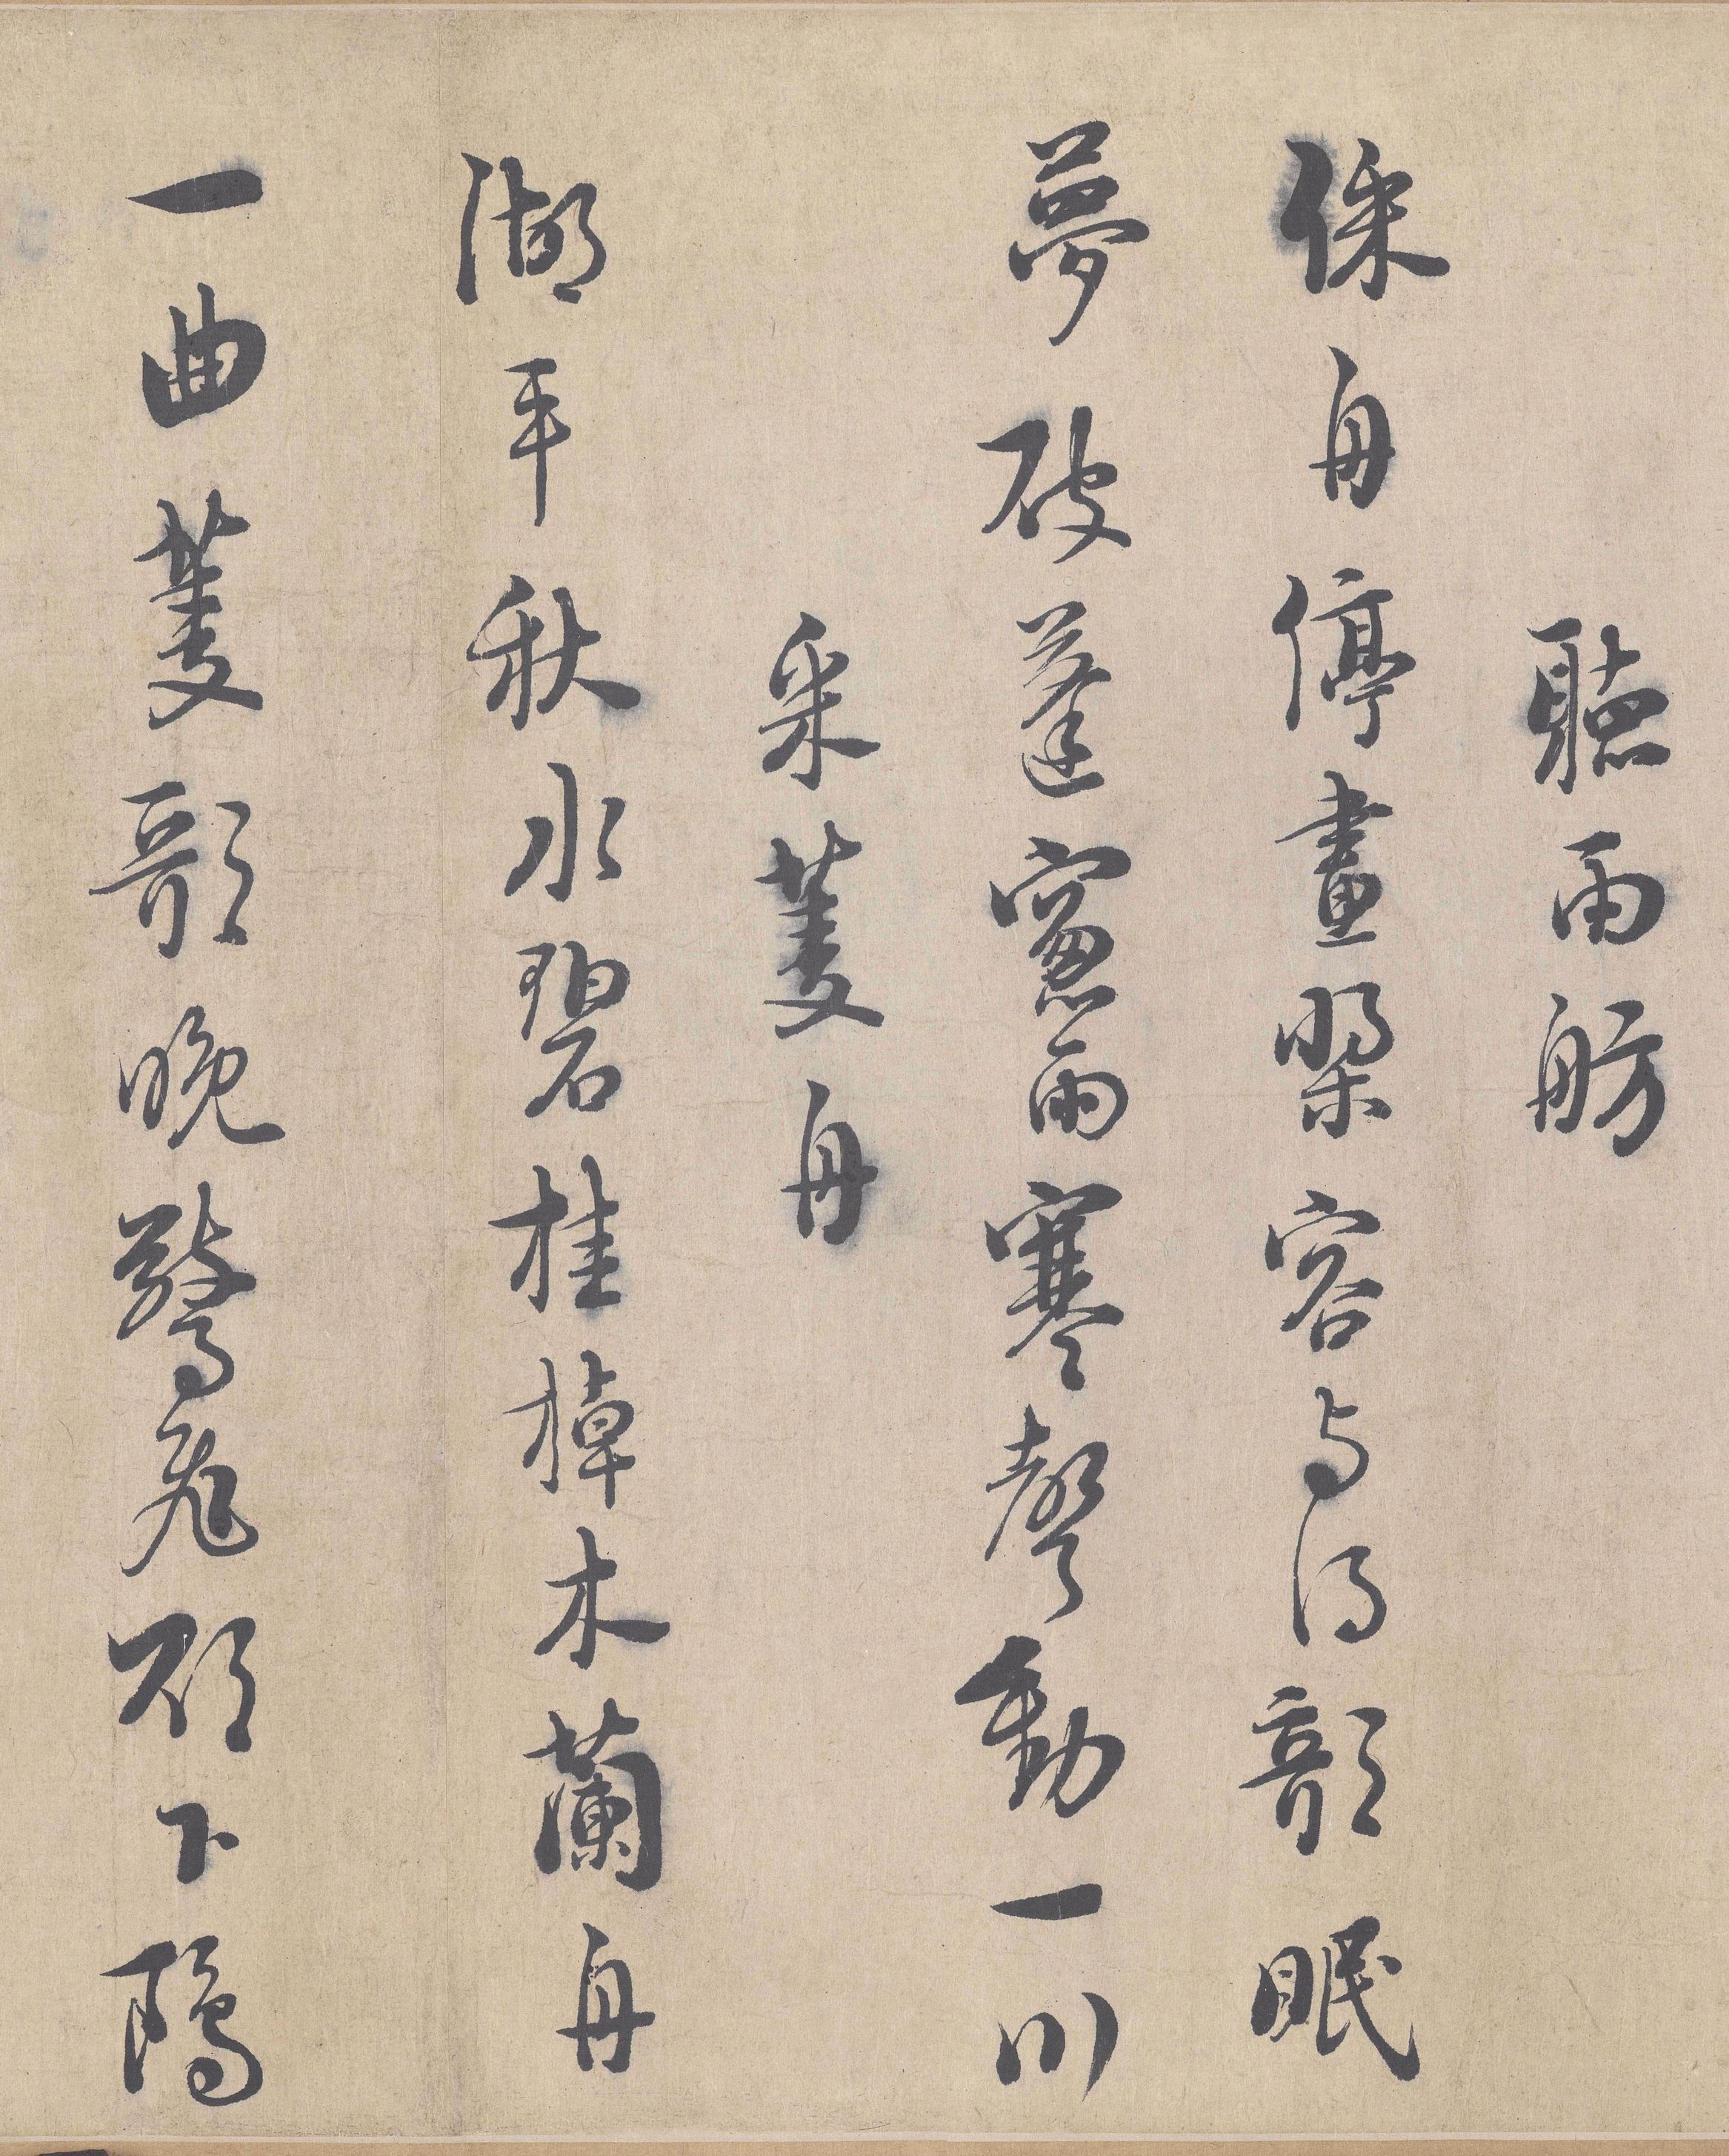 聽雨舫
倸舟停畫槳容与得欹眠
夢破蓬窻雨寒聲動一川
采菱舟
湖平秋水碧桂棹木蘭舟
一曲菱歌晚驚飛欲下鷗